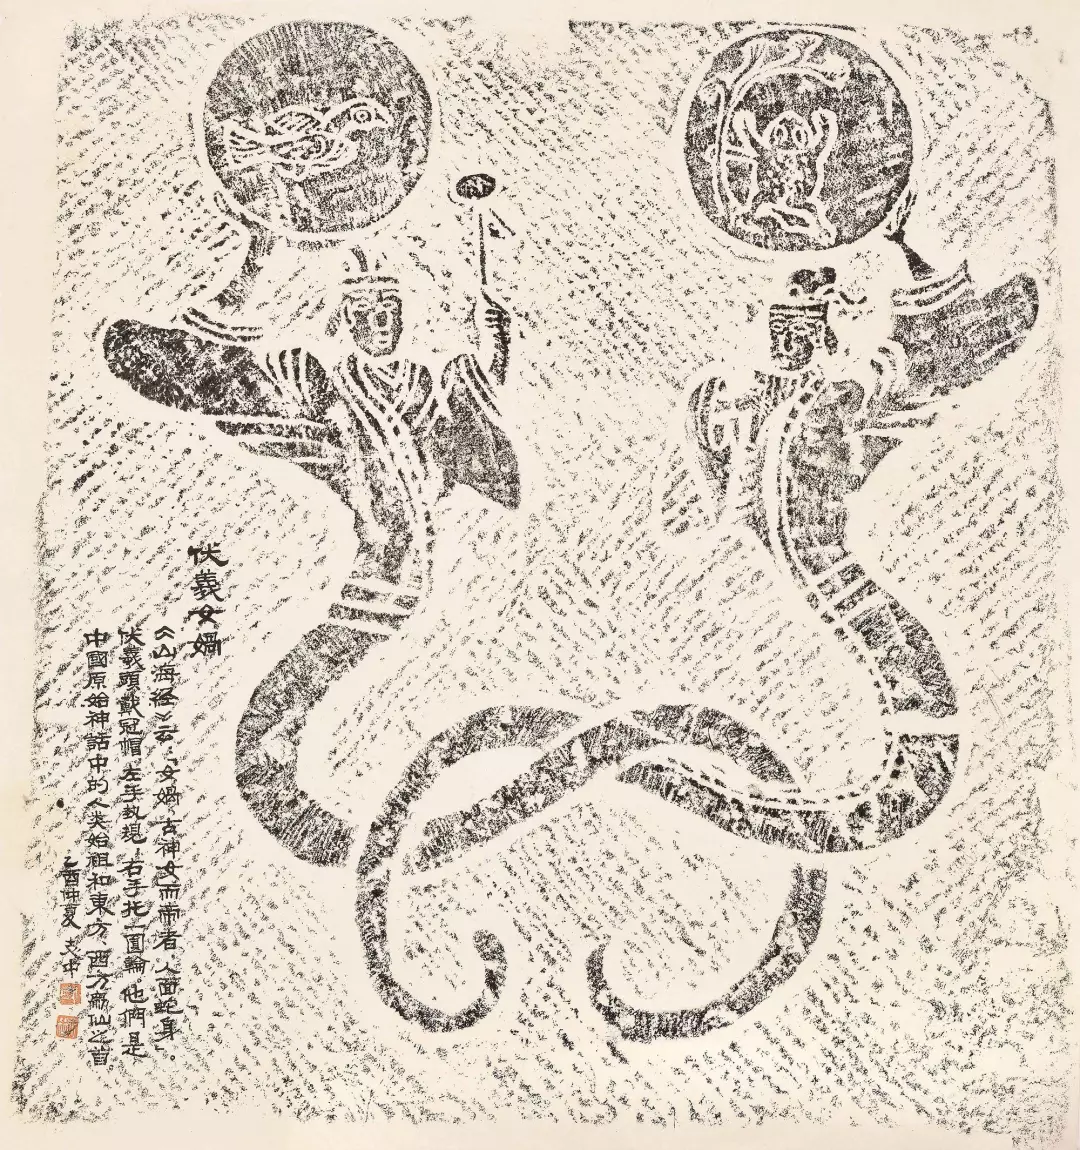 伏羲女媧
《山海经》云:“女媧,古神女而帝者,人面蛇身”。
伏羲頭戴冠帽,左手执規,右手托一圓輪,他們是
中國原始神話中的人类始祖和東方、西方仙之首。
乙酉仲夏 文中